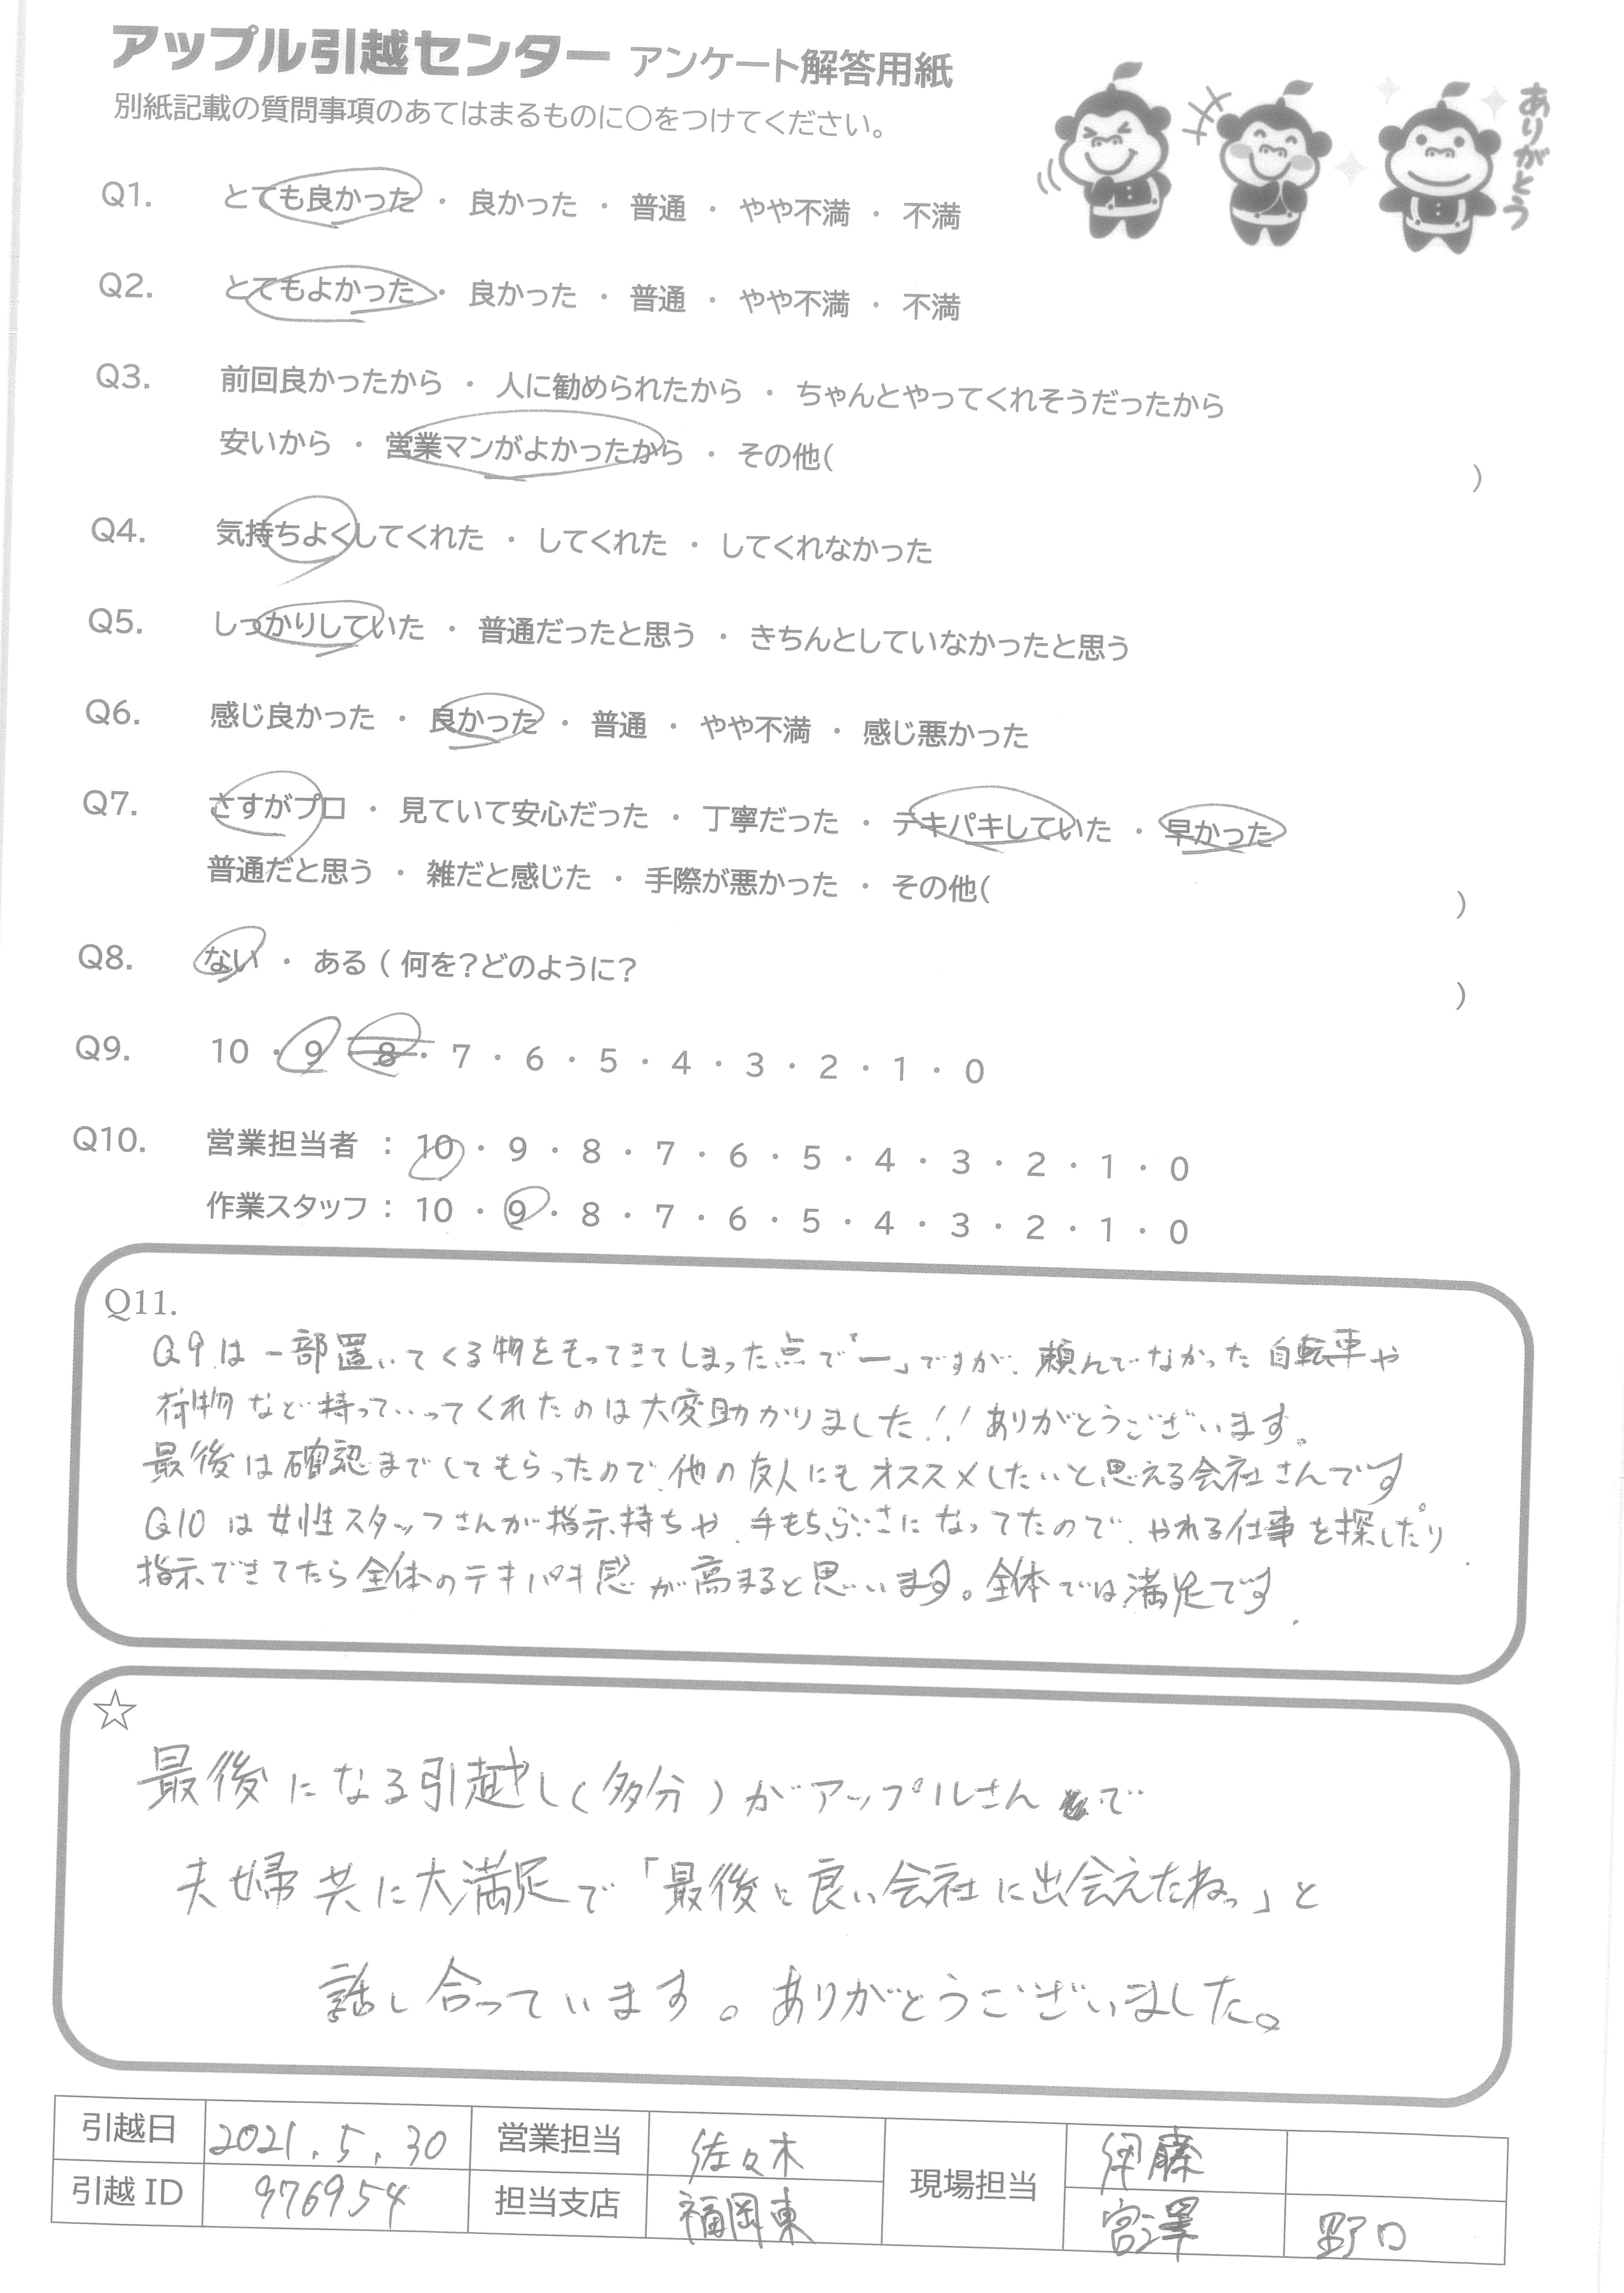 アップル引越センター アンケート解答用紙
別紙記載の質問事項のあてはまるものに○をつけてください。
ありがとう
Q1. とても良かった ・ 良かった ・ 普通 ・ やや不満 ・ 不満
Q2. とてもよかった ・ 良かった ・ 普通 ・ やや不満 ・ 不満
Q3. 前回良かったから ・ 人に勧められたから ・ ちゃんとやってくれそうだったから
安いから ・ 営業マンがよかったから ・ その他( )
Q4. 気持ちよくしてくれた ・ してくれた ・ してくれなかった
Q5. しっかりしていた ・ 普通だったと思う ・ きちんとしていなかったと思う
Q6. 感じ良かった ・ 良かった ・ 普通 ・ やや不満 ・ 感じ悪かった
Q7. さすがプロ ・ 見ていて安心だった ・ 丁寧だった ・ テキパキしていた ・ 早かった
普通だと思う ・ 雑だと感じた ・ 手際が悪かった ・ その他( )
Q8. ない ・ ある ( 何を?どのように? )
Q9. 10 ・ 9 ・ 8 ・ 7 ・ 6 ・ 5 ・ 4 ・ 3 ・ 2 ・ 1 ・ 0
Q10. 営業担当者 : 10 ・ 9 ・ 8 ・ 7 ・ 6 ・ 5 ・ 4 ・ 3 ・ 2 ・ 1 ・ 0
作業スタッフ : 10 ・ 9 ・ 8 ・ 7 ・ 6 ・ 5 ・ 4 ・ 3 ・ 2 ・ 1 ・ 0
Q11.
Q9.は一部置いてくる物をもってきてしまった点で「ー」ですが、頼んでなかった自転車や
荷物など持っていってくれたのは大変助かりました!!ありがとうございます。
最後は確認までしてもらったので、他の友人にもオススメしたいと思える会社さんです
Q10は女性スタッフさんが指示持ちや、手もちぶさになってたので、やれる仕事を探したり
指示できてたら全体のテキパキ感が高まると思います。全体では満足です.
☆
最後になる引越し(多分)がアップルさんで
夫婦共に大満足で「最後に良い会社に出会えたねっ」と
話し合っています。ありがとうございました。
引越日 2021.5.30 営業担当 佐々木 現場担当 伊藤
引越 ID 976954 担当支店 福岡東 宮澤 野口